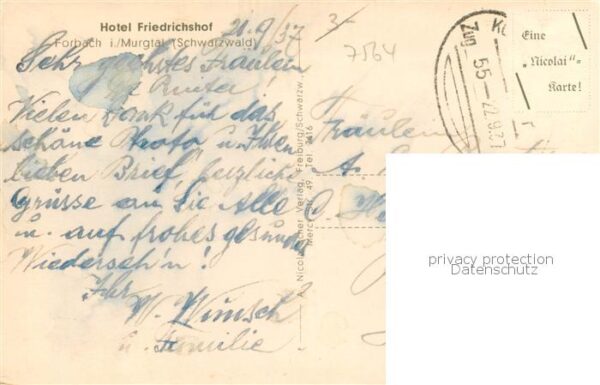 Hotel Friedrichshof
Forbach i./Murgtal (Schwarzwald)
21.9/37
7564
Sehr geehrtes Fräulein
Anita!
Vielen Dank für das
schöne Photo u. Ihren
lieben Brief, herzliche
Grüsse an Sie Alle
u. auf frohes gesund
Wiederseh'n!
Ihr
W. Wünsch
u. Familie
Nicolai'scher Verlag, Freiburg/Schwarzw.
Mercystr. 49 Tel. 3416
Eine
„Nicolai"-
Karte!
Zug 55 - 22.9.37
Fräulein
A.
privacy protection
Datenschutz